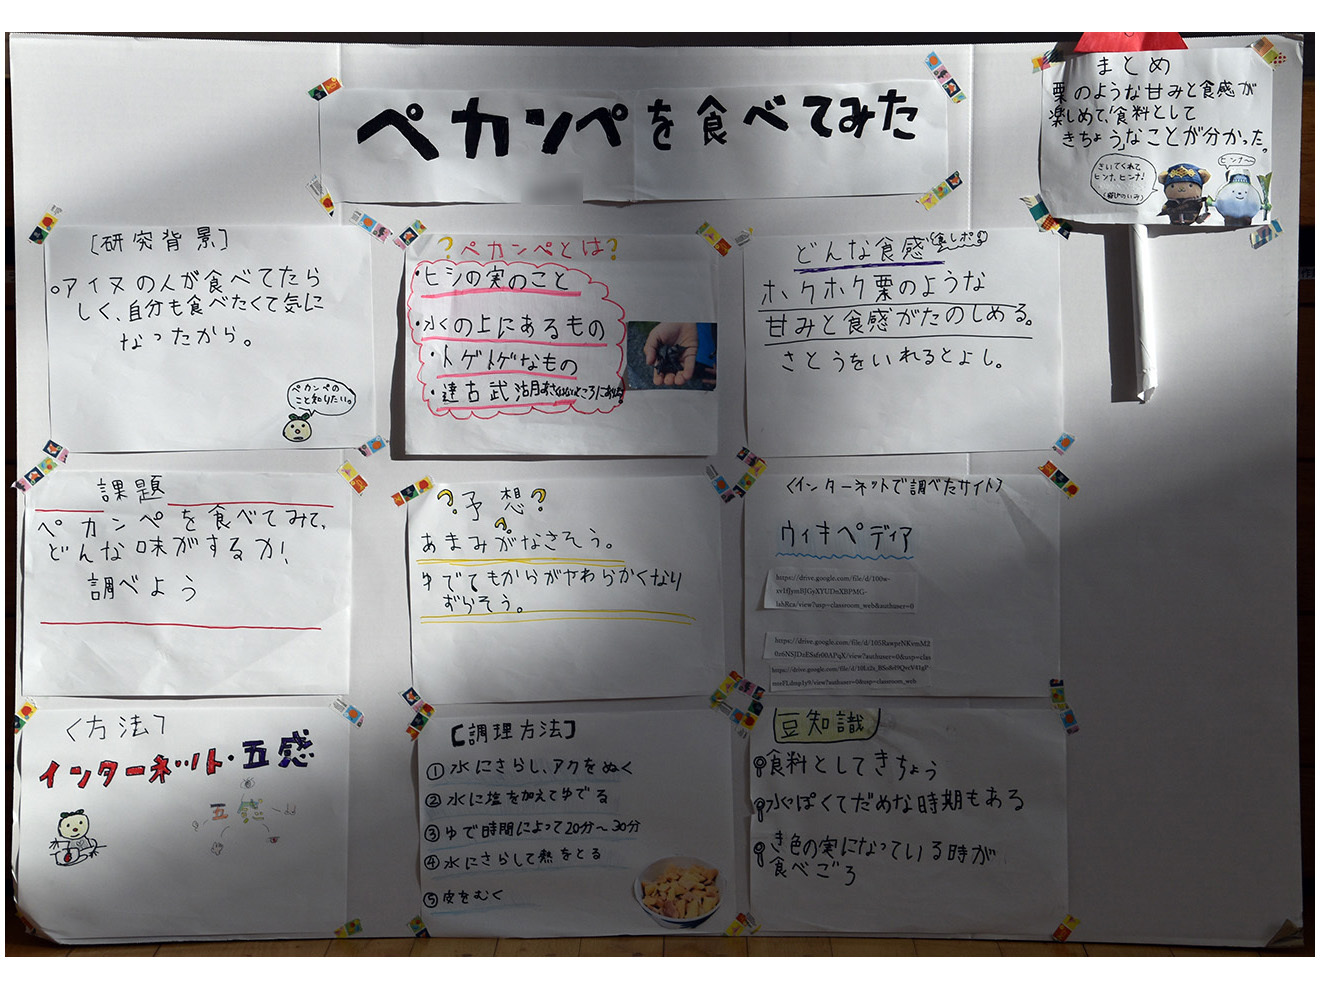 ペカンペを食べてみた
まとめ
栗のような甘みと食感が
楽しめて、食料として
きちょうなことが分かった。
きいてくれて
ヒンナ、ヒンナ!
ヒンナ〜
[研究背景]
アイヌの人が食べてたら
しく、自分も食べたくて気に
なったから。
ペカンペの
こと知りたい。
?ペカンペとは?
・ヒシの実のこと
・水の上にあるもの
・トゲトゲなもの
・達古武湖
ところにあった
どんな食感
ホクホク栗のような
甘みと食感がたのしめる。
さとうをいれるとよし。
課題
ペカンペを食べてみて、
どんな味がするか!
調べよう
?予想?
あまみがなさそう。
ゆでてもからがやわらかくなり
ずらそう。
〈インターネットで調べたサイト〉
ウィキペディア
https://drive.google.com/file/d/100w-
xv1fJymBJGyXYUDnXBPMG-
IahRca/view?usp=classroom_web&authuser=0
https://drive.google.com/file/d/105RawprNKvmM2
0z6NSJDzESsfr00APqX/view?authuser=0&usp=clas
https://drive.google.com/file/d/
/view?authuser=0&usp=classroom_web
〈方法〉
インターネット・五感
五感
[調理方法]
①水にさらし、アクをぬく
②水に塩を加えてゆでる
③ゆで時間によって20分〜30分
④水にさらして熱をとる
⑤皮をむく
豆知識
食料としてきちょう
水っぽくてだめな時期もある
き色の実になっている時が
食べごろ